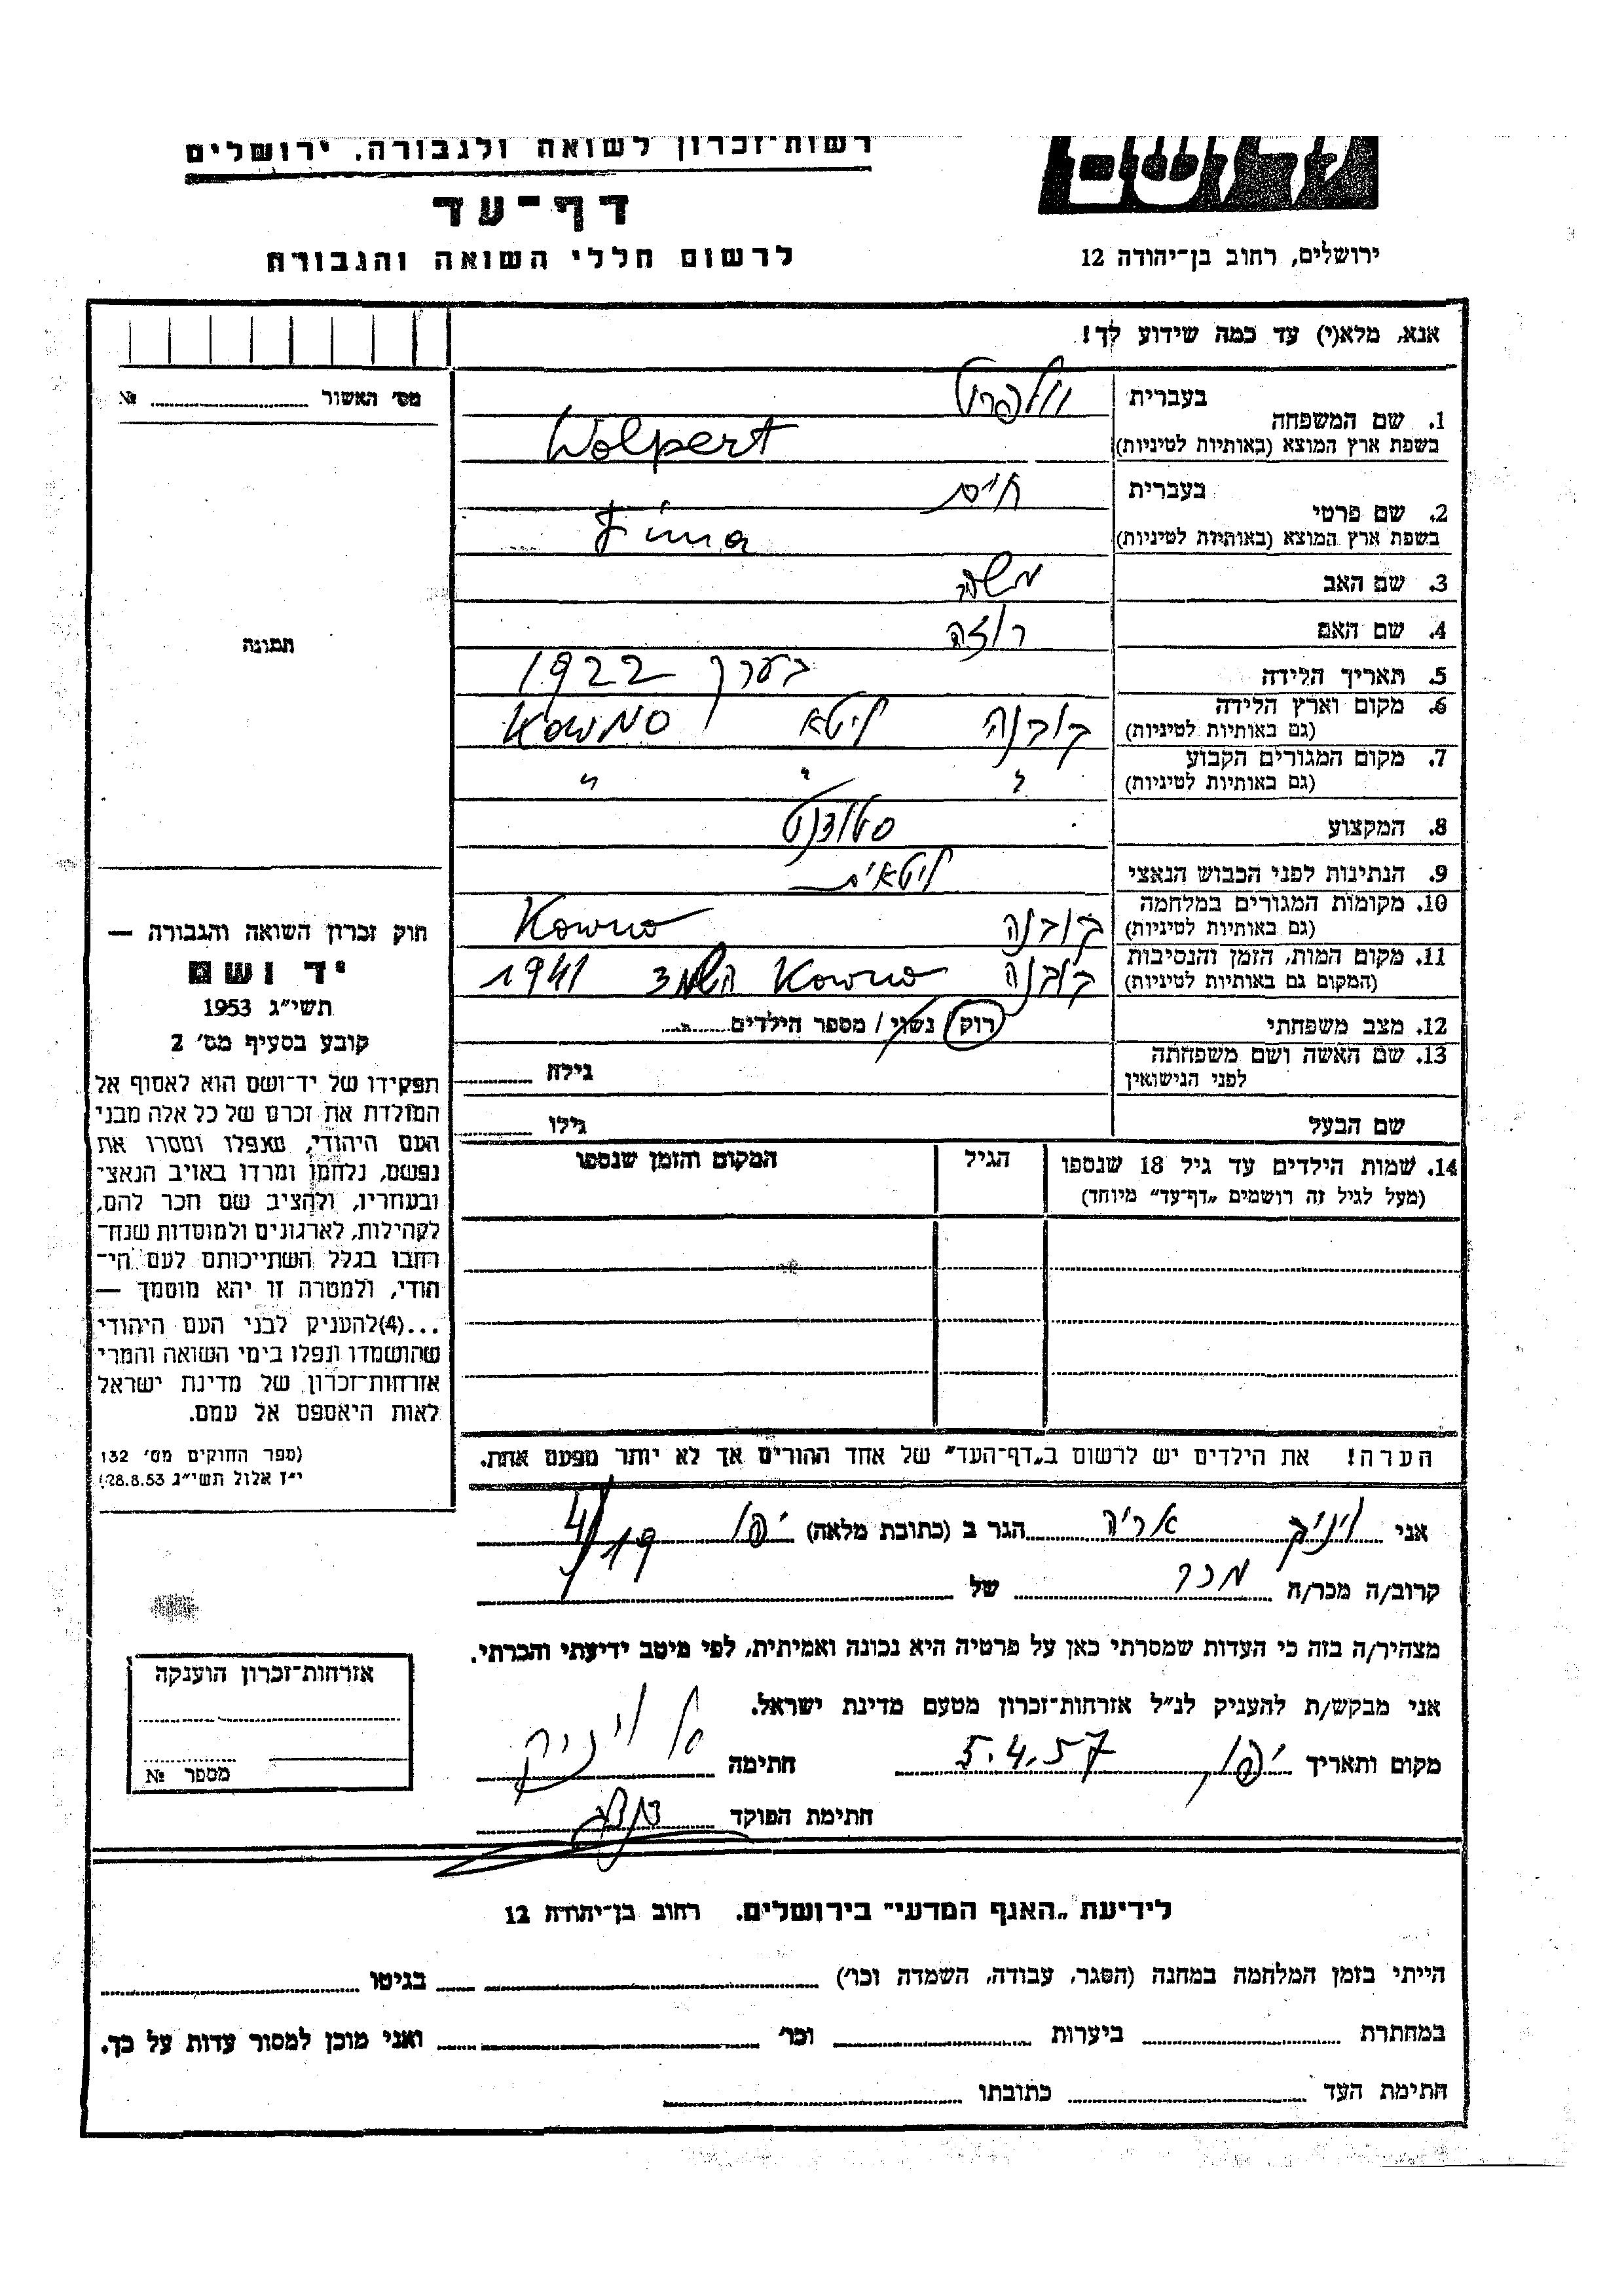 רשות־זכרון לשואה ולגבורה. ירושלים
דף־עד
לרשום חללי השואה והגבורה
ירושלים, רחוב בן־יהודה 12
אנא, מלא(י) עד כמה שידוע לך!
מס׳ האשור № 
1. שם המשפחה בעברית וולפרט
בשפת ארץ המוצא (באותיות לטיניות) Wolpert
2. שם פרטי בעברית חיים
בשפת ארץ המוצא (באותיות לטיניות)
3. שם האב משה
4. שם האם רוזה
תמונה
5. תאריך הלידה בערך 1922
6. מקום וארץ הלידה קובנה ליטא Kowno
(גם באותיות לטיניות)
7. מקום המגורים הקבוע " " "
(גם באותיות לטיניות)
8. המקצוע סטודנט
9. הנתינות לפני הכבוש הנאצי ליטאית
10. מקומות המגורים במלחמה קובנה Kowno
(גם באותיות לטיניות)
11. מקום המות, הזמן והנסיבות קובנה Kowno 1941
(המקום גם באותיות לטיניות)
12. מצב משפחתי רוק / נשוי / מספר הילדים
13. שם האשה ושם משפחתה
לפני הנישואין גילה
שם הבעל גילו
14. שמות הילדים עד גיל 18 שנספו הגיל המקום והזמן שנספו
(מעל לגיל זה רושמים „דף־עד״ מיוחד)
חוק זכרון השואה והגבורה —
יד ושם
תשי״ג 1953
קובע בסעיף מס׳ 2
תפקידו של יד־ושם הוא לאסוף אל
המולדת את זכרם של כל אלה מבני
העם היהודי, שנפלו ומסרו את
נפשם, נלחמו ומרדו באויב הנאצי
ובעוזריו, ולהציב שם וזכר להם,
לקהילות, לארגונים ולמוסדות שנח־
רבו בגלל השתייכותם לעם הי־
הודי, ולמטרה זו יהא מוסמך —
...(4)להעניק לבני העם היהודי
שהושמדו ונפלו בימי השואה והמרי
אזרחות־זכרון של מדינת ישראל
לאות היאספם אל עמם.
(ספר החוקים מס׳ 132
י״ז אלול תשי״ג 28.8.53)
הערה! את הילדים יש לרשום ב„דף־העד״ של אחד ההורים אך לא יותר מפעם אחת.
אני ויניק אריה הגר ב (כתובת מלאה) יפו
קרוב/ה מכר/ה מכר של
מצהיר/ה בזה כי העדות שמסרתי כאן על פרטיה היא נכונה ואמיתית, לפי מיטב ידיעתי והכרתי.
אני מבקש/ת להעניק לנ״ל אזרחות־זכרון מטעם מדינת ישראל.
מקום ותאריך יפו, 5.4.57 חתימה א ויניק
חתימת הפוקד
אזרחות־זכרון הוענקה
מספר №
לידיעת „האגף המדעי״ בירושלים. רחוב בן־יהודה 12
הייתי בזמן המלחמה במחנה (הסגר, עבודה, השמדה וכו׳) בגיטו
במחתרת ביערות וכו׳ ואני מוכן למסור עדות על כך.
חתימת העד כתובתו